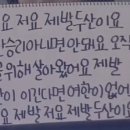 요 저요 제발 두산이요
승리아니면 안돼요 오직
을 위해 살아왔어요 제발
산이 이긴다면 여한이 없어
요 제발 저요 제발 두산이요